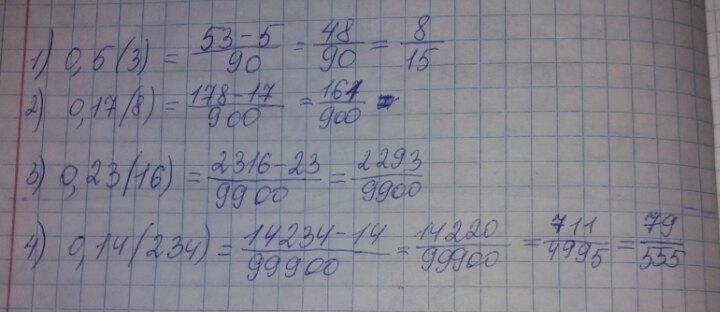 1) 0,5(3) = 53-5/90 = 48/90 = 8/15
2) 0,17(8) = 178-17/900 = 161/900
3) 0,23(16) = 2316-23/9900 = 2293/9900
4) 0,14(234) = 14234-14/99900 = 14220/99900 = 711/4995 = 79/555